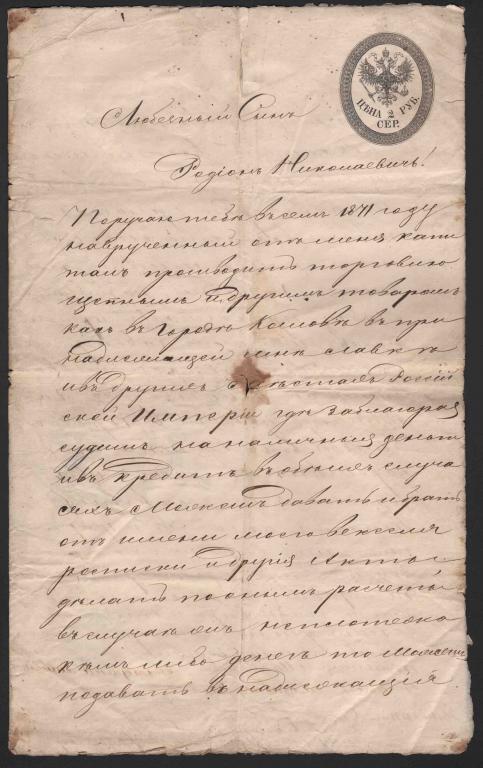 ЦѢНА 2 РУБ.
СЕР.
Любезный Сынъ
Родіонъ Николаевичь!
Поручаю тебѣ въ семъ 1871 году
на врученный отъ меня капи
талъ производить торговлю
и другимъ товаромъ
какъ въ Городѣ Козловѣ въ при
надлежащей мнѣ лавкѣ
и въ другихъ мѣстахъ Россій
ской Имперіи гдѣ заблагораз
судишь на наличныя деньги
и въ кредитъ въ обоихъ случа
яхъ Можешь давать и брать
отъ имени моего векселя
росписки и другія Акты и
дѣлать по онымъ расчеты
въ случаю неплатежа
кѣмъ либо денегъ то Можешь
подавать въ надлежащія